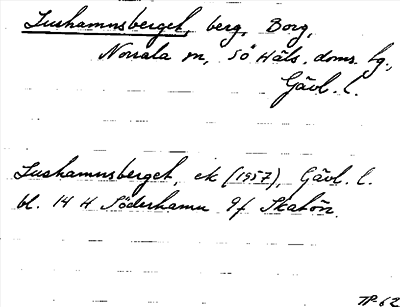 Lushamnsberget, berg, Borg,
Norrala sn, SÖ Häls. doms. lg.,
Gävl. l.
Lushamnsberget, ek (1957), Gävl. l.
bl. 14 H Söderhamn 9f Skatön.
TP-62